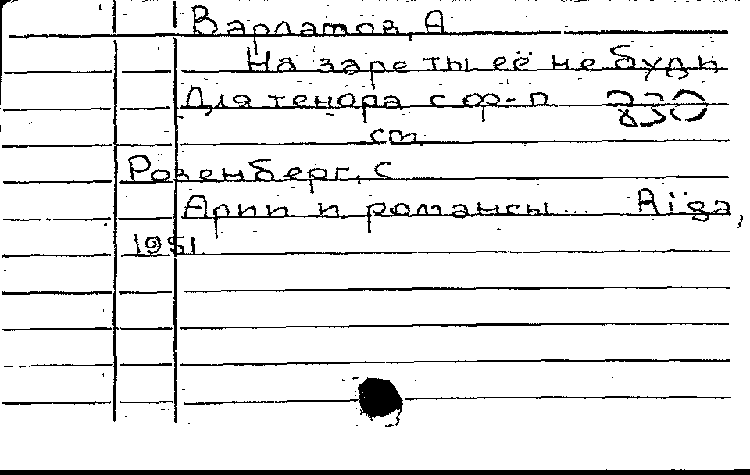 Варламов, А
На заре ты её не буди
Для тенора с ф-п
см.
Розенберг, С
Арии и романсы... Rīga,
1951.